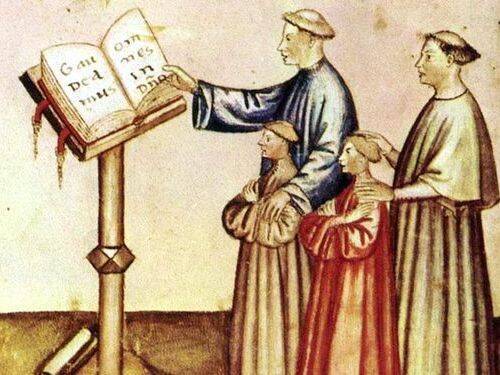 Gau
Dea
mus
om
nes
in
Dño